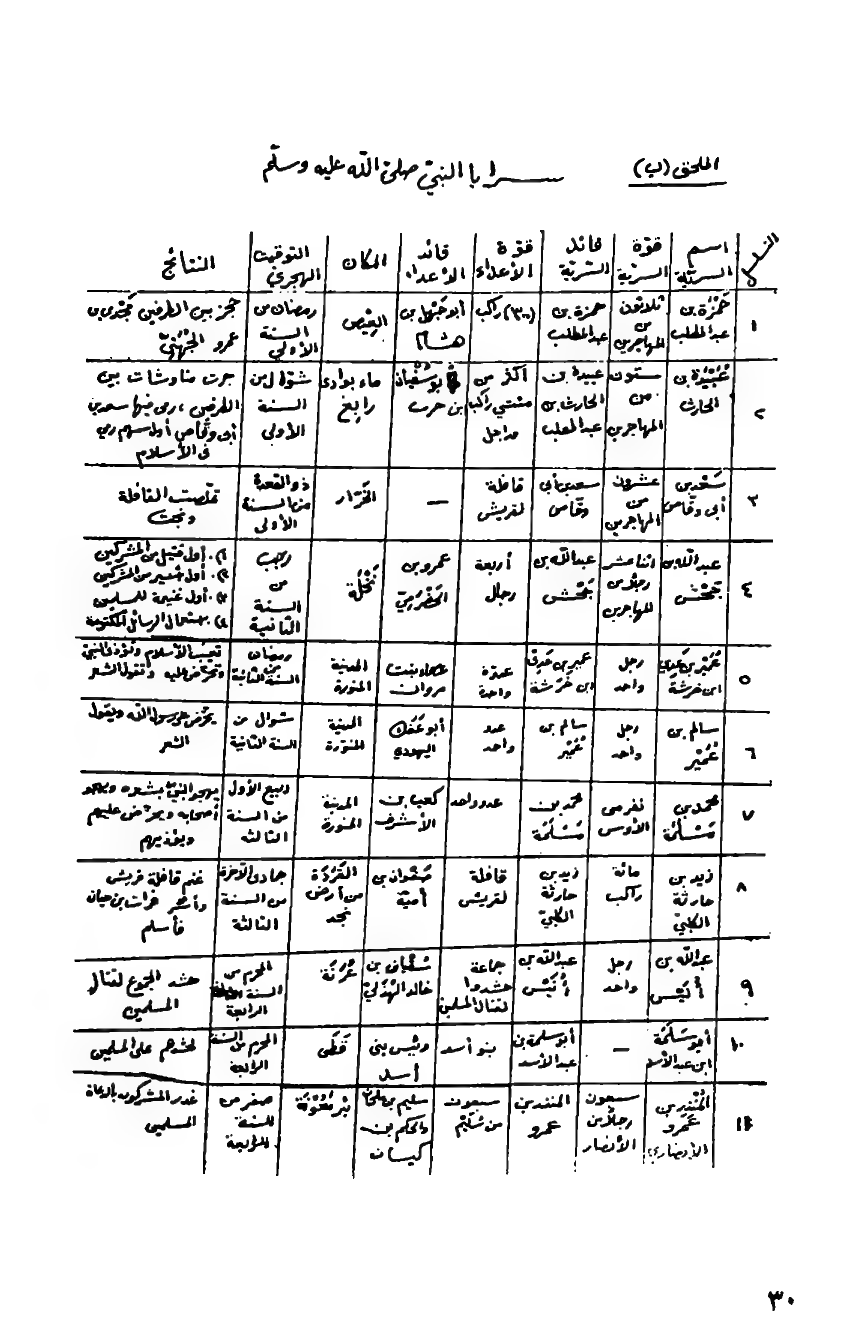 الملحق (ب)
سرايا النبيّ صلى الله عليه وسلّم
التسلسل | اسم السريّة | قوّة السريّة | قائد السريّة | قوّة الأعداء | قائد الأعداء | المكان | التوقيت الهجري | النتائج
١ | حَمْزَة بن عبد المطلب | ثلاثون من المهاجرين | حمزة بن عبد المطلب | (٣٠٠) راكب | أبو جَهل بن هشام | العِيْص | رمضان من السنة الأولى | حجز بين الطرفين مَجْدِي بن عمرو الجُهَنِيّ
٢ | عُبَيْدَة بن الحارث | ستون من المهاجرين | عبيدة بن الحارث بن عبد المطلب | أكثر من مئتي راكب وراجل | أبو سفيان بن حرب | ماء بوادي رابغ | شوّال من السنة الأولى | جرت مناوشات بين الطرفين، رمى فيها سعد بن أبي وقاص أول سهم رمي في الأسلام
٣ | سَعْد بن أبي وقّاص | عشرون من المهاجرين | سعد بن أبي وقّاص | قافلة لقريش | — | الخَرّار | ذو القعدة من السنة الأولى | تملّصت القافلة ونجت
٤ | عبد الله بن جَحْش | اثنا عشر رجلاً من المهاجرين | عبد الله بن جَحْش | أربعة رجال | عمرو بن الحَضْرَمِيّ | نَخْلَة | رجب من السنة الثانية | ١. أول قتيل من المشركين ٢. أول أسير من المشركين ٣. أول غنيمة للمسلمين ٤. استعمال الرسائل المكتومة
٥ | عُمَيْر بن عَدِيّ ابن خرشة | رجل واحد | عمير بن عدي ابن خَرَشَة | عدوّة واحدة | عصماء بنت مروان | المدينة المنورة | رمضان من السنة الثانية | تعيب الأسلام وتؤذي النبي وتحرّض عليه وتقول الشعر
٦ | سالم بن عُمَيْر | رجل واحد | سالم بن عُمَيْر | عدو واحد | أبو عَفَك اليهودي | المدينة المنوّرة | شوال من السنة الثانية | يحرّض على رسول الله ويقول الشعر
٧ | محمد بن مَسْلَمَة | نفر من الأوس | محمد بن مَسْلَمَة | عدو واحد | كعب بن الأشرف | المدينة المنورة | ربيع الأول من السنة الثالثة | يهجو النبيّ بشعره ويهجو أصحابه ويحرّض عليهم ويؤذيهم
٨ | زيد بن حارثة الكلبيّ | مائة راكب | زيد بن حارثة الكلبيّ | قافلة لقريش | صَفْوان بن أميّة | القَرَدَة من أرض نجد | جمادى الآخرة من السنة الثالثة | غنم قافلة قريش وأسر فرات بن حيان فأسلم
٩ | عبد الله بن أُنَيْس | رجل واحد | عبد الله بن أُنَيْس | جماعة حشدوا لقتال المسلمين | سُفْيان بن خالد الهُذَليّ | عُرَنَة | المحرم من السنة الرابعة | حشد الجموع لقتال المسلمين
١٠ | أبو سَلَمَة ابن عبد الأسد | — | أبو سلمة بن عبد الأسد | بنو أسد | رئيس بني أسد | قَطَن | المحرم من السنة الرابعة | لحشدهم على المسلمين
١١ | المُنْذِر بن عَمرو الأنصاري | سبعون رجلاً من الأنصار | المنذر بن عمرو | سبعون من سُلَيْم | سليم بن ملحان والحكم بن كيسان | بئر مَعُوْنَة | صفر من السنة الرابعة | غدر المشركون بالدعاة المسلمين
٣٠